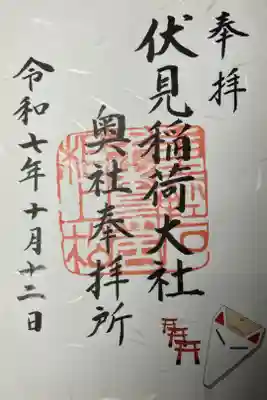 奉拝
伏見稲荷大社
奥社奉拝所
令和七年十月十二日